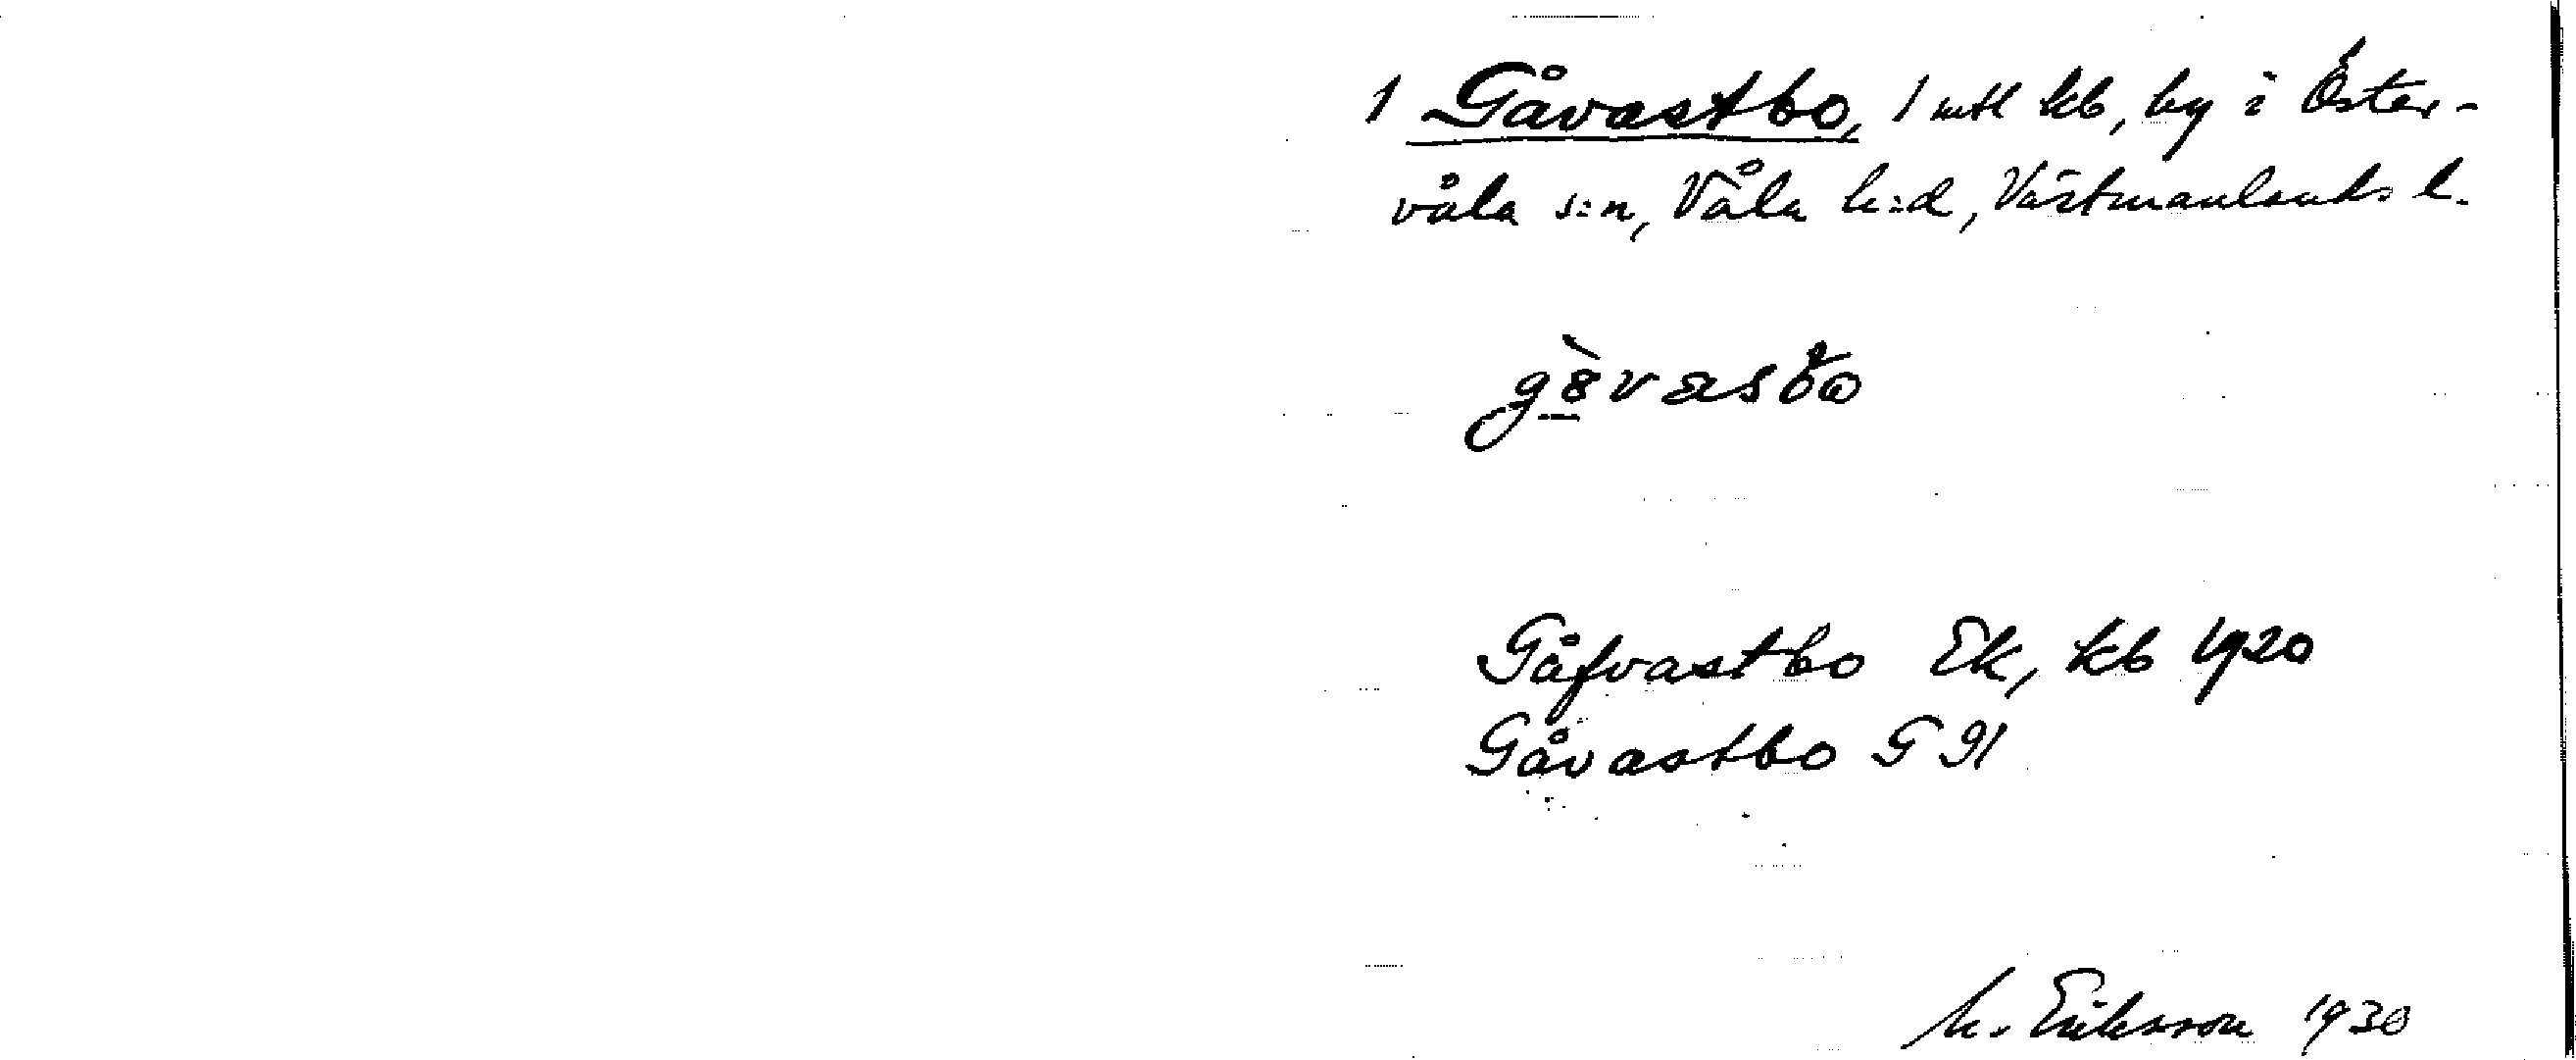 1 Gåvastbo, 1 mtl kb, by i Öster-
våla s:n, Våla h:d, Västmanlands l.
Gåfvastbo Ek, kb 1920
Gåvastbo G 91
M. Eriksson 1930